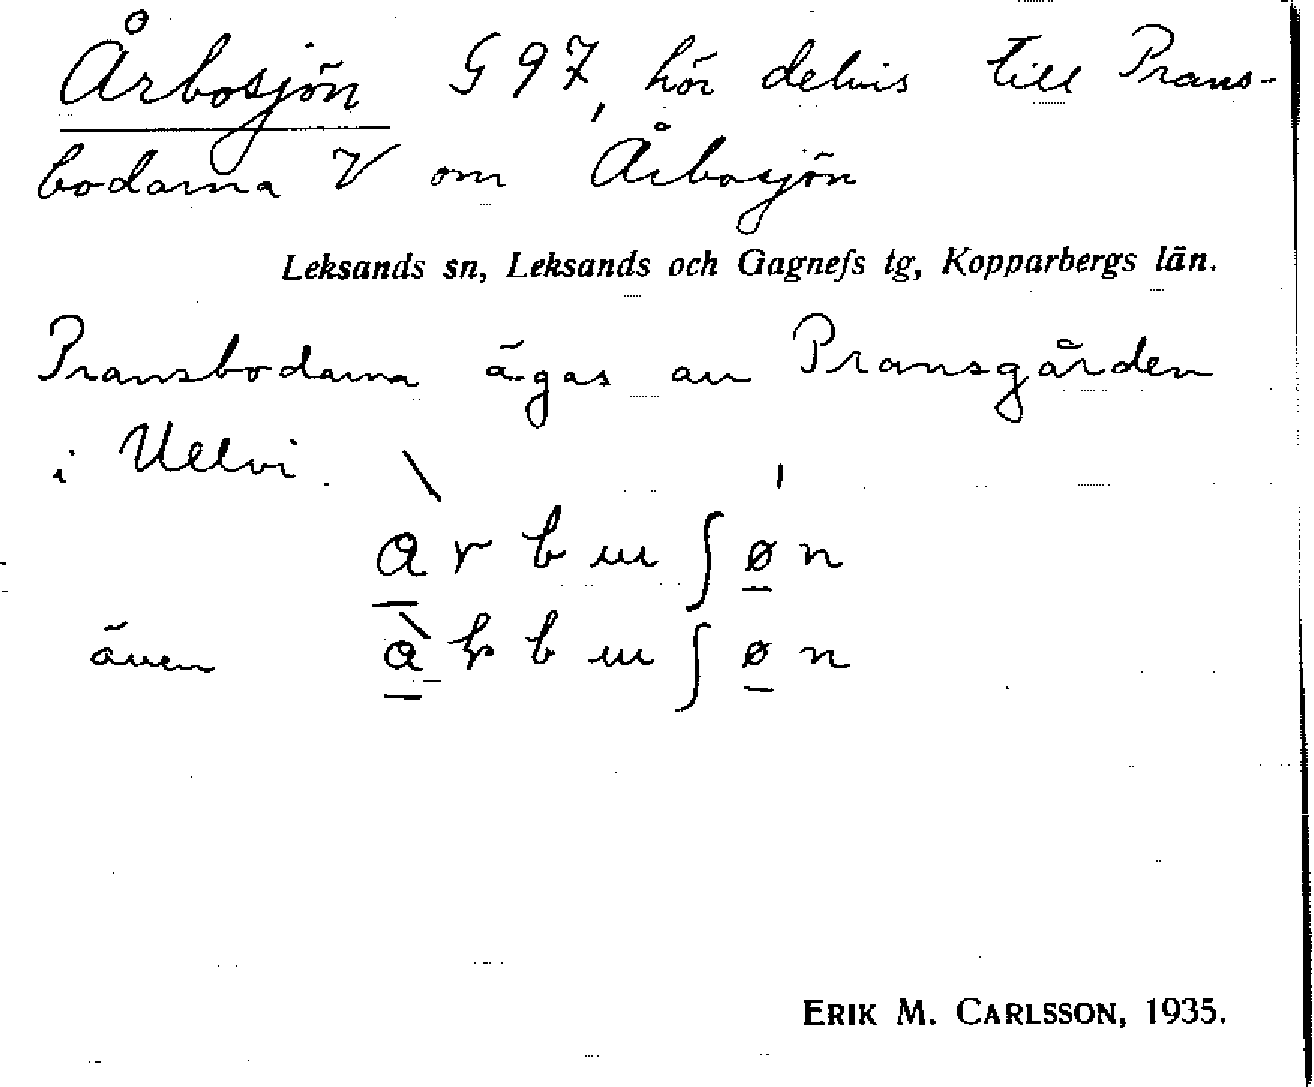 Årbosjön G 97, hör delvis till Prans-
bodarna V om Årbosjön
Leksands sn, Leksands och Gagnefs tg, Kopparbergs län.
Pransbodarna ägas av Pransgården
i Ullvi.
a r b ɯ ʃ ø n
även
ERIK M. CARLSSON, 1935.